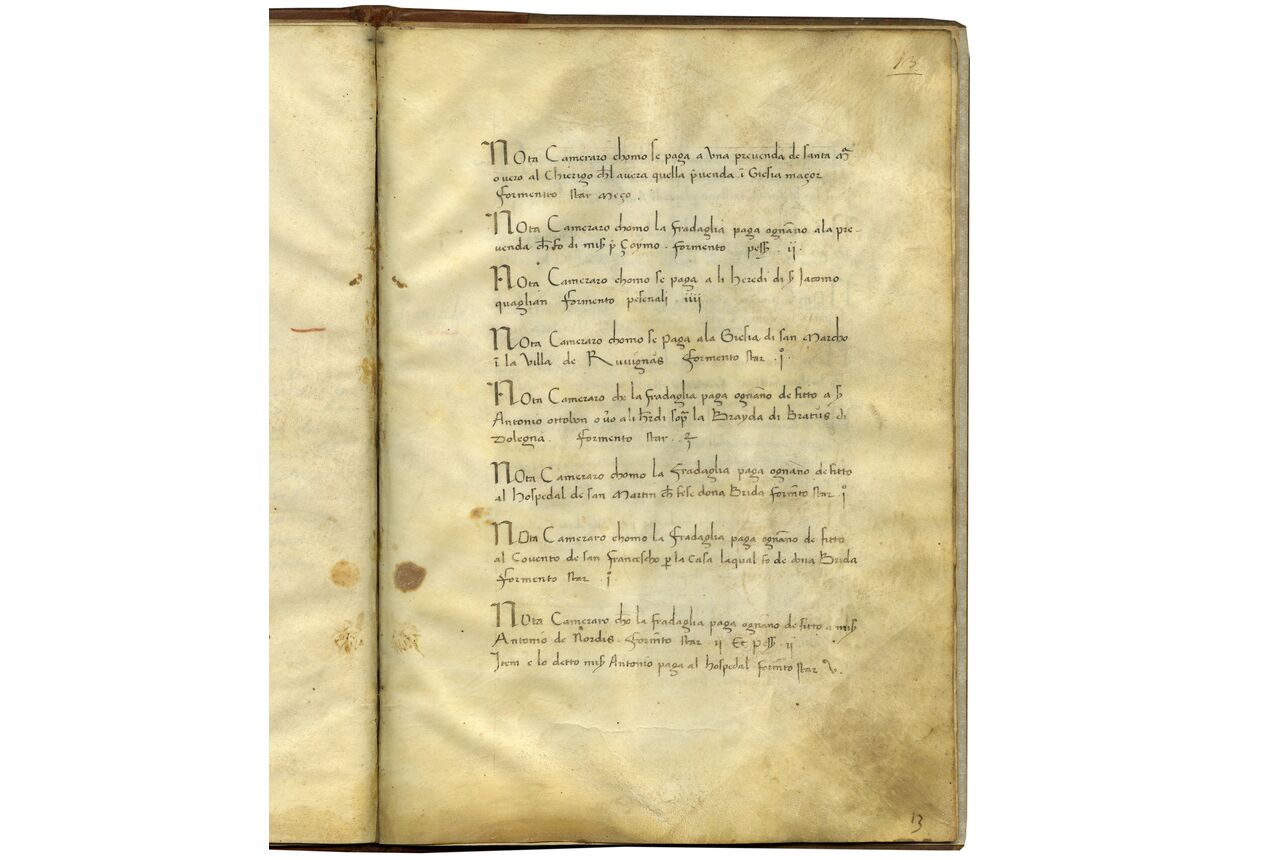 13
Nota Cameraro chomo se paga a vna prevenda de santa mã
overo al Chierigo chl avera quella pvenda ĩ Giesia maçor
formento star meço.
Nota Cameraro chomo la fradaglia paga ognãno ala pre-
venda ch fo di mis p Çoymo. formento pess. ij.
Nota Cameraro chomo se paga a li heredi di s Jacomo
quaglian formento pesenali iiij
Nota Cameraro chomo se paga ala Giesia di san Marcho
ĩ la villa de Ruvignas formento star .j.
Nota Cameraro cho la fradaglia paga ognãno de fitto a s
Antonio ottobon o vo a li hrdi sop la Brayda di Bratus di
Dolegna. formento star.
Nota Cameraro chomo la fradaglia paga ognãno de fitto
al hospedal de san Martin ch fese dona Brida formto star j
Nota Cameraro chomo la fradaglia paga ognãno de fitto
al Covento de san francescho p la casa laqual fo de dona Brida
formento star .j.
Nota Cameraro cho la fradaglia paga ognãno de fitto a mis
Antonio de Nordis. formto star ij Et pss. ij
Item e lo detto mis Antonio paga al hospedal formto star v.
13